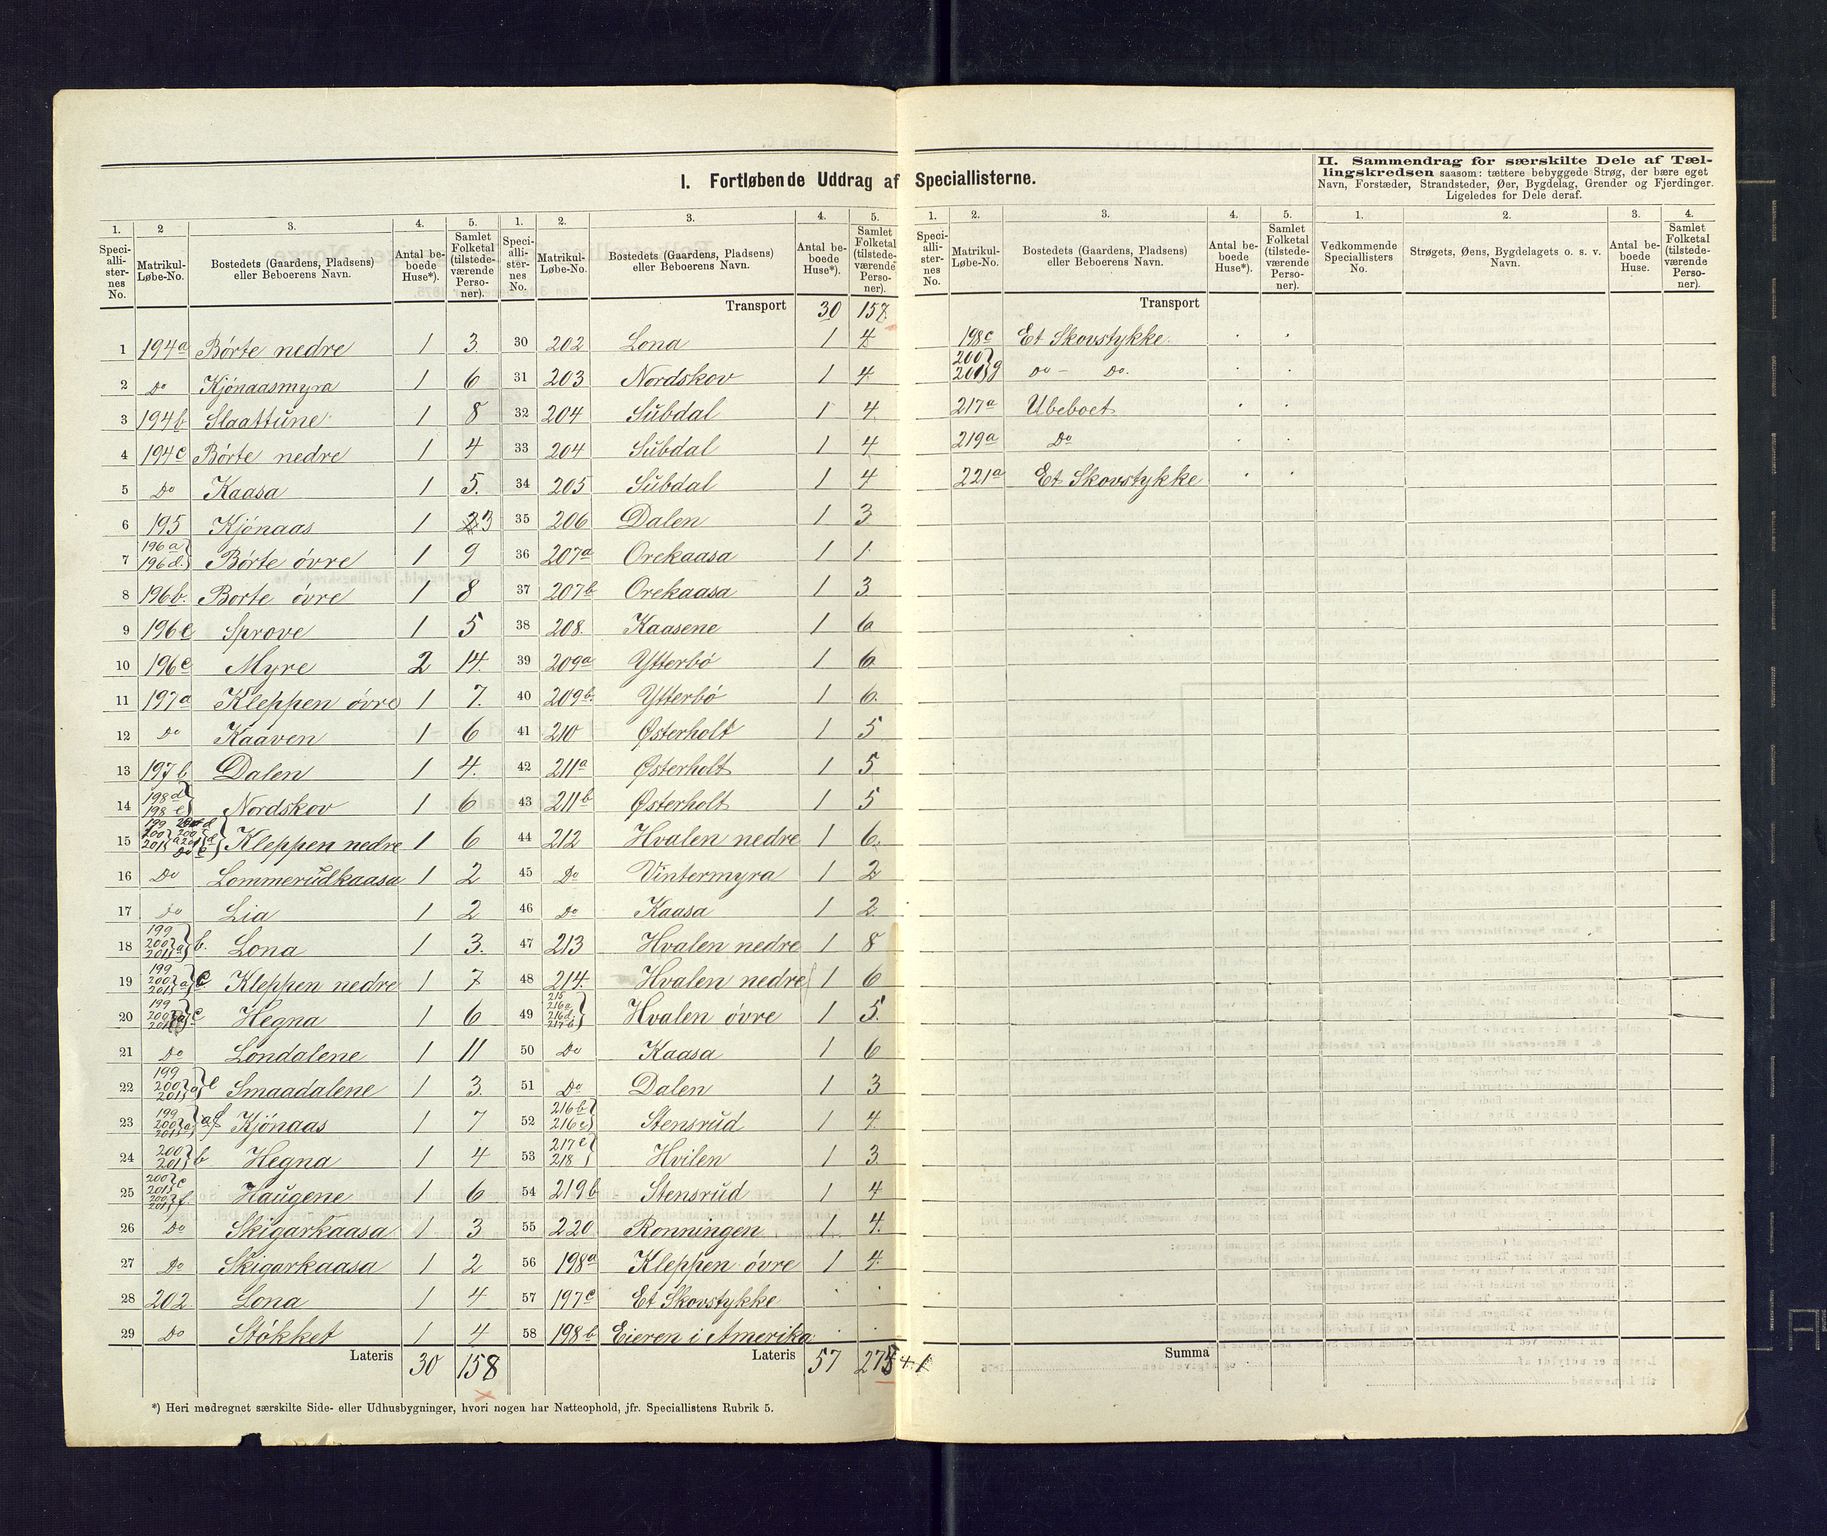 I. Fortløbende Uddrag af Speciallisterne.
II. Sammendrag for særskilte Dele af Tæl-
lingskredsen saasom: tættere bebyggede Strøg, der bære eget
Navn, Forstæder, Strandsteder, Øer, Bygdelag, Grender og Fjerdinger.
Ligeledes for Dele deraf.
1. 2 3. 4. 5.
Speciallisternes No. Matrikul-Løbe-No. Bostedets (Gaardens, Pladsens) eller Beboerens Navn. Antal beboede Huse*). Samlet Folketal (tilstedeværende Personer).
1 194a Børte nedre 1 3.
2 Do Kjønaasmyra 1 6
3 194b Slaattune 1 8
4 194c Børte nedre 1 4
5 Do Kaasa 1 5.
6 195 Kjønaas 1 3
7 196a 196d. Børte øvre 1 9
8 196b. Borte øvre 1 8
9 196e Sprove 1 5
10 196c Myre 2 14.
11 197a Kleppen øvre 1 7.
12 Do Kaaven 1 6
13 197b Dalen 1 4.
14 198d 198e Nordskov 1 6
15 199 200 201 Kleppen nedre 1 6
16 Do Lommerudkaasa 1 2
17 Do Lia 1 2
18 199 200 201 a b. Lona 1 3.
19 199 200 201 a c Kleppen nedre 1 7
20 199 200 201 c Hegna 1 6
21 Do Londalene 1 11
22 199 200 201 a e Smaadalene 1 3.
23 199 200 201 a f Kjønaas 1 7
24 200 201 b Hegna 1 4
25 200 201 c 200 201 f. Haugene 1 6
26 Do Skigarkaasa 1 3
27 Do Skigarkaasa 1 2
28 202 Lona 1 4
29 Do Støkket 1 4
Lateris 30 158
1. 2. 3. 4. 5.
Speciallisternes No. Matrikul-Løbe-No. Bostedets (Gaardens, Pladsens) eller Beboerens Navn. Antal beboede Huse*). Samlet Folketal (tilstedeværende Personer).
Transport 30 158
30 202 Lona 1 4
31 203 Nordskov 1 4.
32 204 Subdal 1 4.
33 204 Subdal 1 4.
34 205 Subdal 1 4
35 206 Dalen 1 3
36 207a Orekaasa 1 1.
37 207b Orekaasa 1 3
38 208. Kaasene 1 6
39 209a Ytterbø 1 6.
40 209b. Ytterbø 1 6.
41 210 Østerholt 1 5
42 211a Østerholt 1 5
43 211b Østerholt 1 5
44 212 Hvalen nedre 1 6.
45 Do Vintermyra 1 2
46 Do Kaasa 1 2.
47 213 Hvalen nedre 1 8
48 214. Hvalen nedre 1 6
49 215 216a 216d. 217b Hvalen øvre 1 5.
50 Do Kaasa 1 6
51 Do Dalen 1 3
52 216b 216c Stensrud 1 4.
53 217c 218 Hvilen 1 3.
54 219b Stensrud 1 4
55 220 Ronningen 1 4.
56 198a Kleppen øvre 1 4.
57 197c Et Skovstykke . .
58 198b Eieren i Amerika . .
Lateris 57 275 +1
*) Heri medregnet særskilte Side- eller Udhusbygninger, hvori nogen har Natteophold, jfr. Speciallistens Rubrik 5.
1. 2. 3. 4. 5.
Speciallisternes No. Matrikul-Løbe-No. Bostedets (Gaardens, Pladsens) eller Beboerens Navn. Antal beboede Huse*). Samlet Folketal (tilstedeværende Personer).
Transport
198c Et Skovstykke. . .
200 201 g Do - Do. . .
217a Ubeboet . .
219a Do . .
221a Et Skovstykke . .
Summa
1. 2. 3. 4.
Vedkommende Speciallisters No. Strøgets, Øens, Bygdelagets o. s. v. Navn. Antal beboede Huse. Samlet Folketal (tilstedeværende Personer).